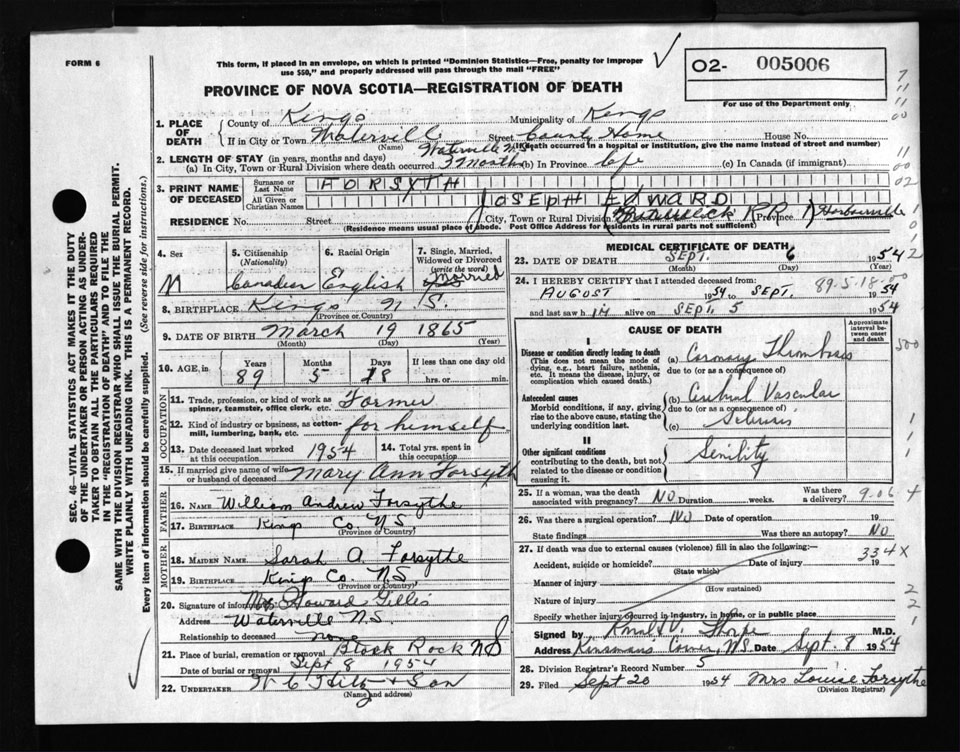 FORM 6
This form, if placed in an envelope, on which is printed "Dominion Statistics—Free, penalty for improper
use $50," and properly addressed will pass through the mail "FREE"
O2- 005006
For use of the Department only
PROVINCE OF NOVA SCOTIA—REGISTRATION OF DEATH
1. PLACE OF DEATH
County of Kings Municipality of Kings
If in City or Town Waterville Street County Home House No.
(Name) Waterville N.S. (If death occurred in a hospital or institution, give the name instead of street and number)
2. LENGTH OF STAY (in years, months and days)
(a) In City, Town or Rural Division where death occurred 3 Months (b) In Province Life (c) In Canada (if immigrant)
3. PRINT NAME OF DECEASED
Surname or Last Name FORSYTH
All Given or Christian Names JOSEPH EDWARD
RESIDENCE No. Street City, Town or Rural Division RR Province Harbourville
(Residence means usual place of abode. Post Office Address for residents in rural parts not sufficient)
4. SEX M
5. Citizenship (Nationality) Canadian
6. Racial Origin English
7. Single, Married, Widowed or Divorced (write the word) Married
8. BIRTHPLACE Kings N.S.
(Province or Country)
9. DATE OF BIRTH March 19 1865
(Month) (Day) (Year)
10. AGE, in Years Months Days If less than one day old
89 5 18 hrs. or min.
OCCUPATION
11. Trade, profession, or kind of work as spinner, teamster, office clerk, etc. Farmer
12. Kind of industry or business, as cotton-mill, lumbering, bank, etc. for himself
13. Date deceased last worked at this occupation 1954
14. Total yrs. spent in this occupation
15. If married give name of wife or husband of deceased Mary Ann Forsyth
FATHER
16. NAME William Andrew Forsythe
17. BIRTHPLACE Kings Co. N.S.
(Province or Country)
MOTHER
18. MAIDEN NAME Sarah A. Forsythe
19. BIRTHPLACE Kings Co. N.S.
(Province or Country)
20. Signature of informant Howard Gillis
Address Waterville N.S.
Relationship to deceased none
21. Place of burial, cremation or removal Black Rock NS
Date of burial or removal Sept 8 1954
22. UNDERTAKER W C Hiltz + Son
(Name and address)
MEDICAL CERTIFICATE OF DEATH
23. DATE OF DEATH SEPT. 6 1954
(Month) (Day) (Year)
24. I HEREBY CERTIFY that I attended deceased from: 89-5-18
AUGUST 1954 to SEPT. 1954
and last saw h IM alive on SEPT. 5 1954
CAUSE OF DEATH
Approximate interval between onset and death
I
Disease or condition directly leading to death
(This does not mean the mode of dying, e.g., heart failure, asthenia, etc. It means the disease, injury, or complication which caused death.)
(a) Coronary Thrombosis
due to (or as a consequence of)
Antecedent causes
Morbid conditions, if any, giving rise to the above cause, stating the underlying condition last.
(b) Cerebral Vascular
due to (or as a consequence of)
(c) Sclerosis
II
Other significant conditions
contributing to the death, but not related to the disease or condition causing it.
Senility
25. If a woman, was the death associated with pregnancy? NO Duration weeks. Was there a delivery? 9.06 4
26. Was there a surgical operation? NO Date of operation 19
State findings Was there an autopsy? NO
27. If death was due to external causes (violence) fill in also the following:
334X
Accident, suicide or homicide? Date of injury 19
(State which)
Manner of injury
(How sustained)
Nature of injury
Specify whether injury occurred in industry, in home, or in public place
Signed by M.D.
Address Kinsmans Corner, N.S. Date Sept. 8 1954
28. Division Registrar's Record Number 5
29. Filed Sept 20 1954 Mrs Louise Forsythe
(Division Registrar)
SEC. 46—VITAL STATISTICS ACT MAKES IT THE DUTY
OF THE UNDERTAKER OR PERSON ACTING AS UNDER-
TAKER TO OBTAIN ALL THE PARTICULARS REQUIRED
IN THE "REGISTRATION OF DEATH" AND TO FILE THE
SAME WITH THE DIVISION REGISTRAR WHO SHALL ISSUE THE BURIAL PERMIT.
WRITE PLAINLY WITH UNFADING INK. THIS IS A PERMANENT RECORD.
Every item of information should be carefully supplied. (See reverse side for instructions.)